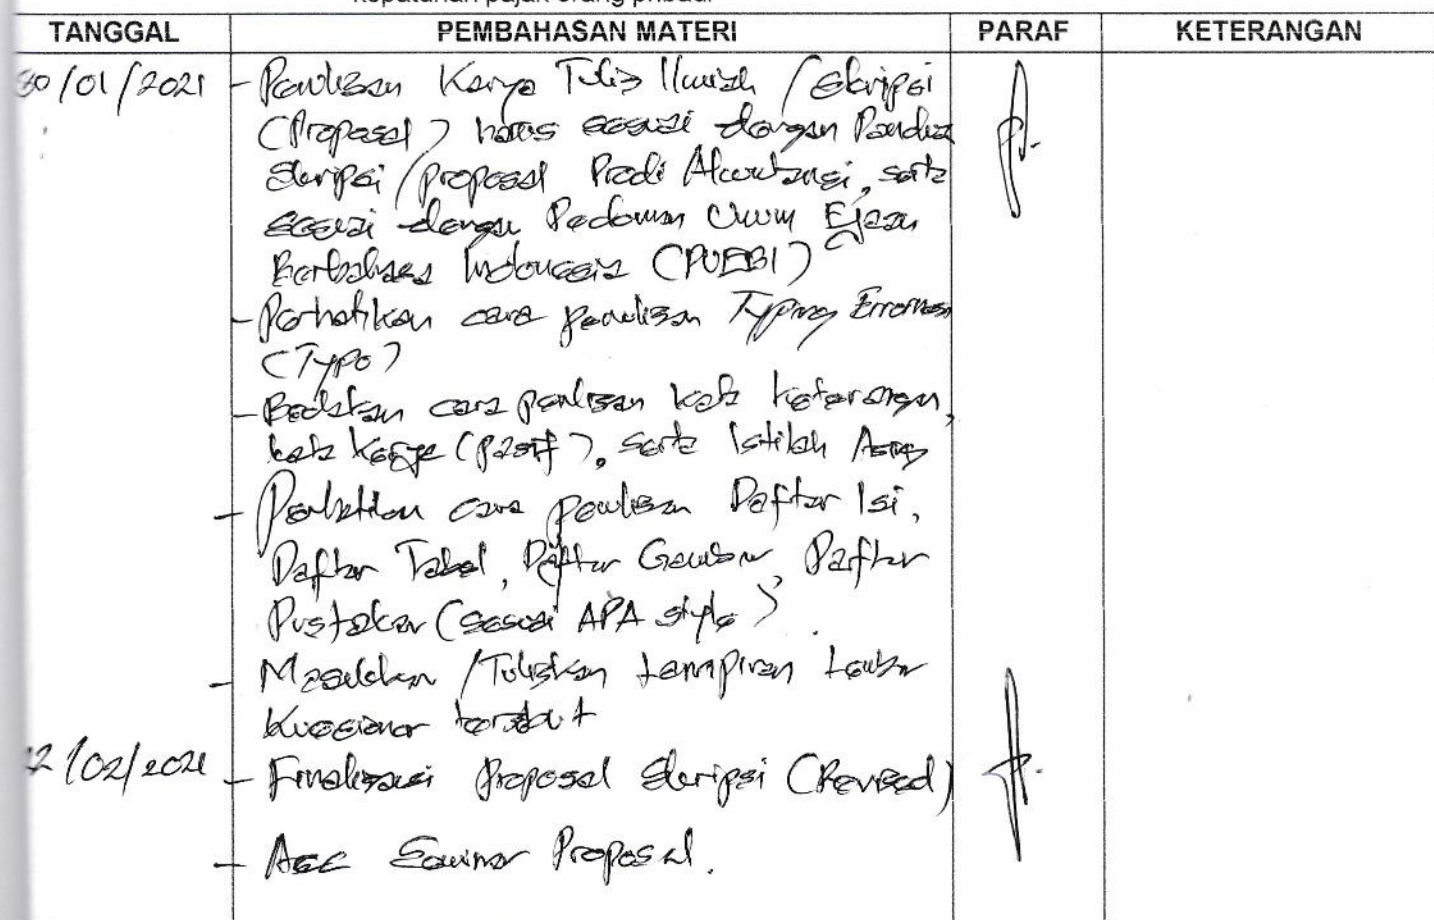 kepatuhan pajak orang pribadi
TANGGAL PEMBAHASAN MATERI PARAF KETERANGAN
30/01/2021 - Penulisan Karya Tulis Ilmiah / Skripsi
(Proposal) harus sesuai dengan Panduan
Skripsi/proposal Prodi Akuntansi, serta
sesuai dengan Pedoman Umum Ejaan
Berbahasa Indonesia (PUEBI)
- Perhatikan cara penulisan Typing Error
(Typo)
- Bedakan cara penulisan kata keterangan,
kata kerja (pasif), serta Istilah Asing
- Perhatikan cara penulisan Daftar Isi,
Daftar Tabel, Daftar Gambar, Daftar
Pustaka (sesuai APA style).
- Masukkan /Tuliskan Lampiran Lembar
Kuesioner tersebut
2/02/2021 - Finalisasi proposal Skripsi (Revised)
- Acc Seminar Proposal.